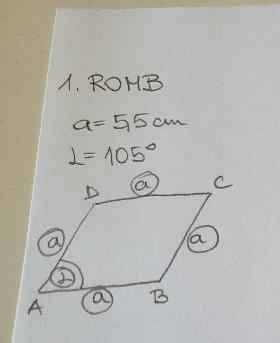 1. ROMB
a = 5,5 cm
α = 105°
D a C
a a
α
A a B